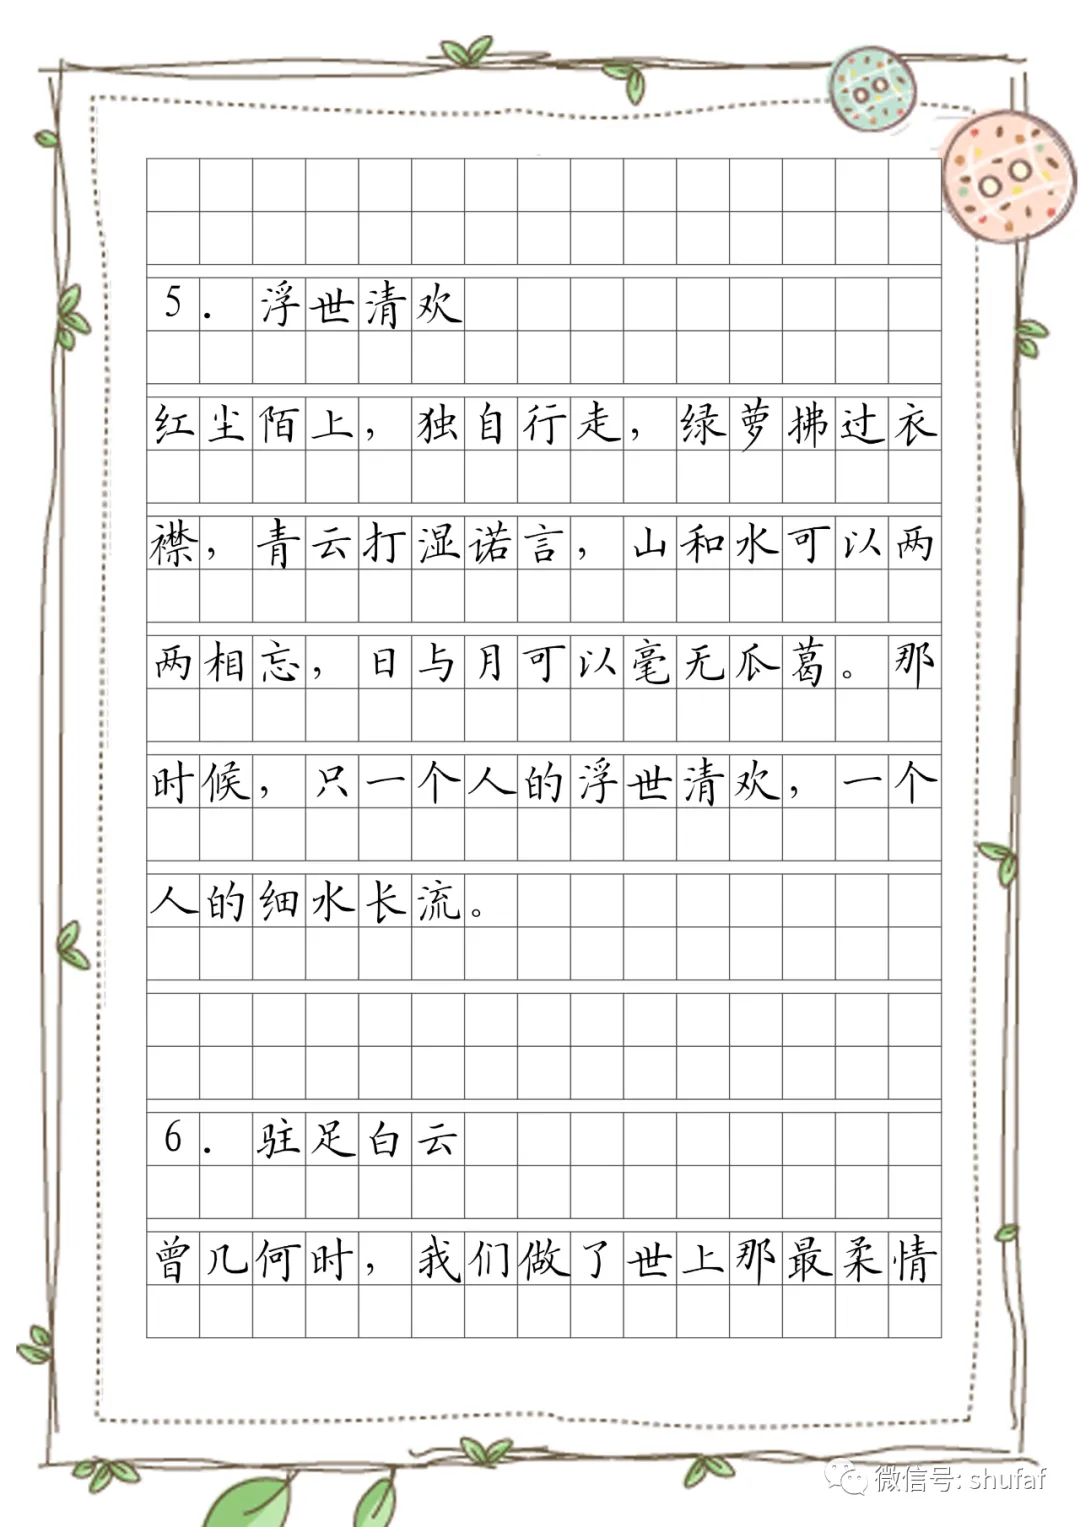 5. 浮世清欢
红尘陌上，独自行走，绿萝拂过衣
襟，青云打湿诺言，山和水可以两
两相忘，日与月可以毫无瓜葛。那
时候，只一个人的浮世清欢，一个
人的细水长流。
6. 驻足白云
曾几何时，我们做了世上那最柔情
微信号: shufaf